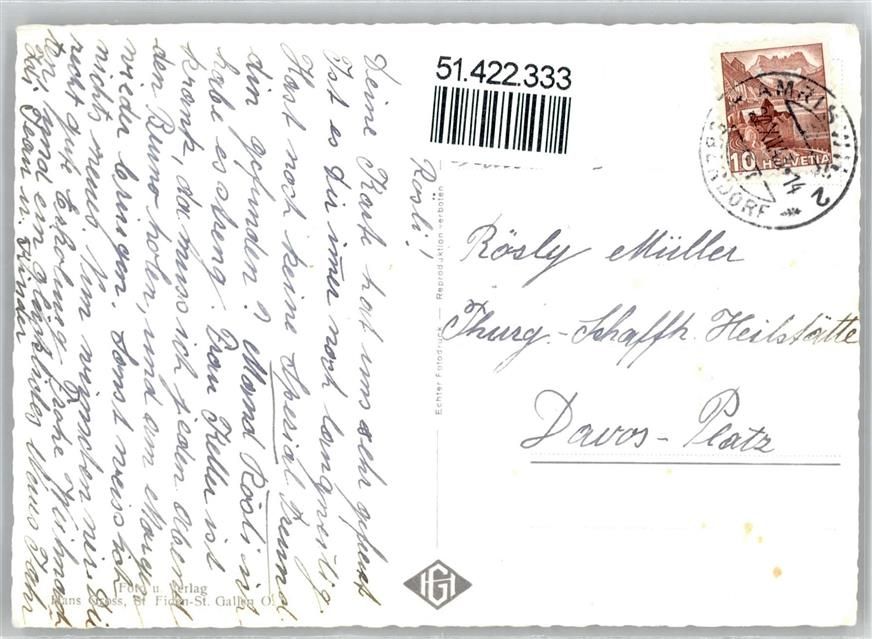 51.422.333
Rösli!
Deine Karte hat uns sehr gefreut
Ist es dir immer noch langweilig.
Hast noch keine Spezial Freundi
din gefunden? Mamd Rösli ich
habe es streng. Frau Keller ist
krank, da muss ich jeden Abend
den Bruno holen, und am Morgen
wieder bringen. Sonst weiss ich
nichts neues. Nun wünschen wir Dir
recht gute Erholung frohe Weihnacht
en und ein glückliches Neues Jahr
Fam. u. Kinder
Rösly Müller
Thurg.-Schaffh. Heilstätte
Davos-Platz
Echter Fotodruck — Reproduktion verboten
Foto u. Verlag
Hans Gross, St. Fiden-St. Gallen O.
HG
10 HELVETIA
AMRISWIL 2